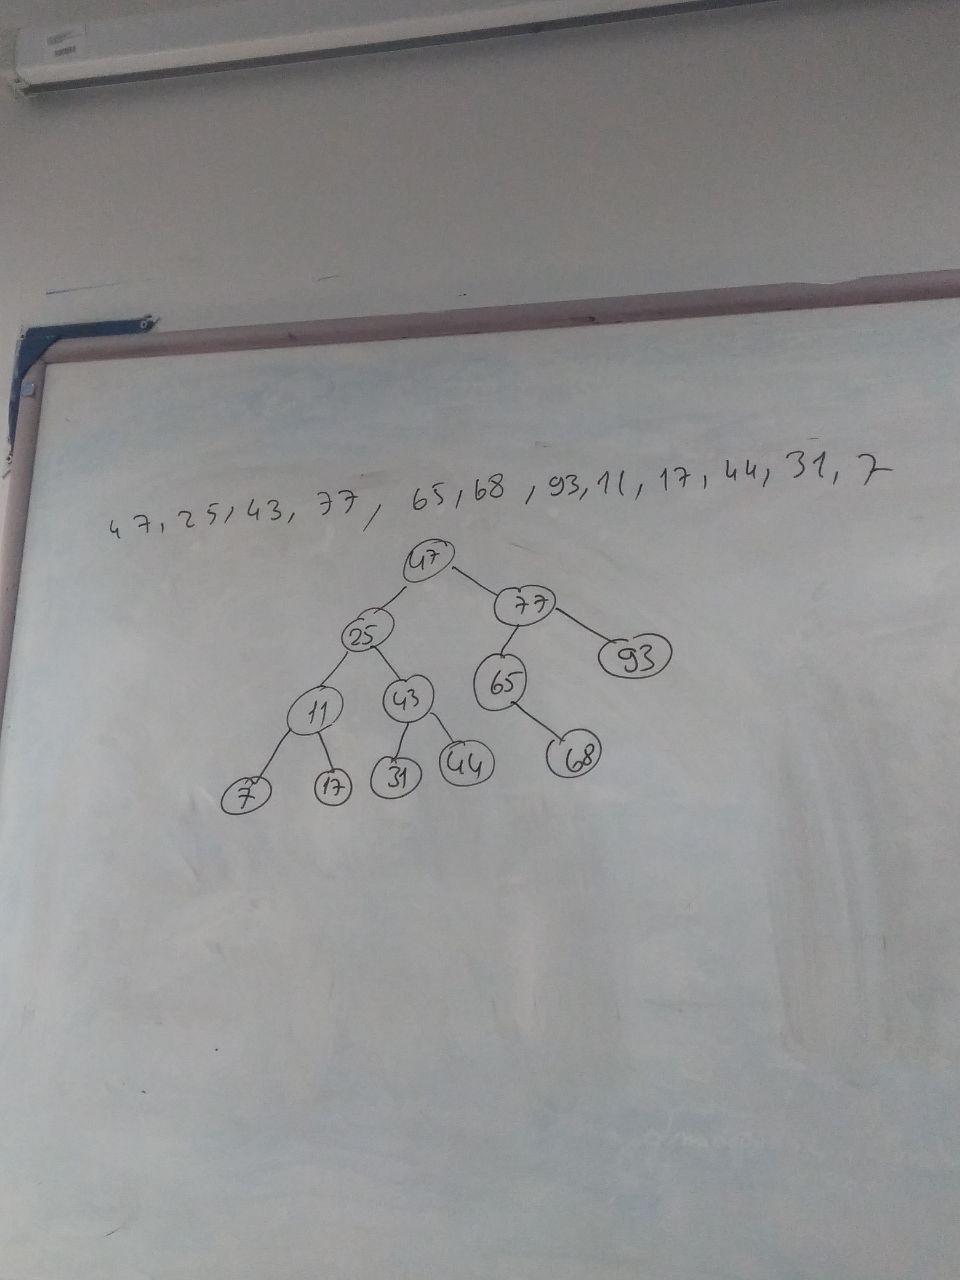 47, 25, 43, 77, 65, 68, 93, 11, 17, 44, 31, 7
47
25 77
11 43 65 93
7 17 31 44 68